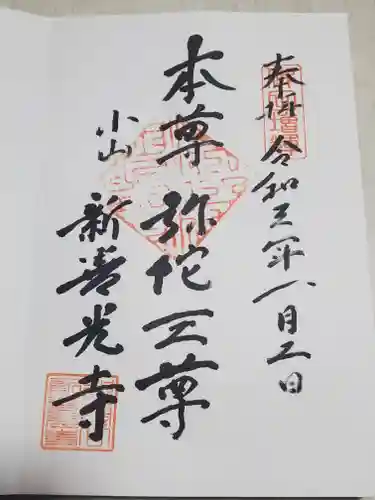 奉拝 令和三年八月二日
本尊 弥陀三尊
小山
新善光寺